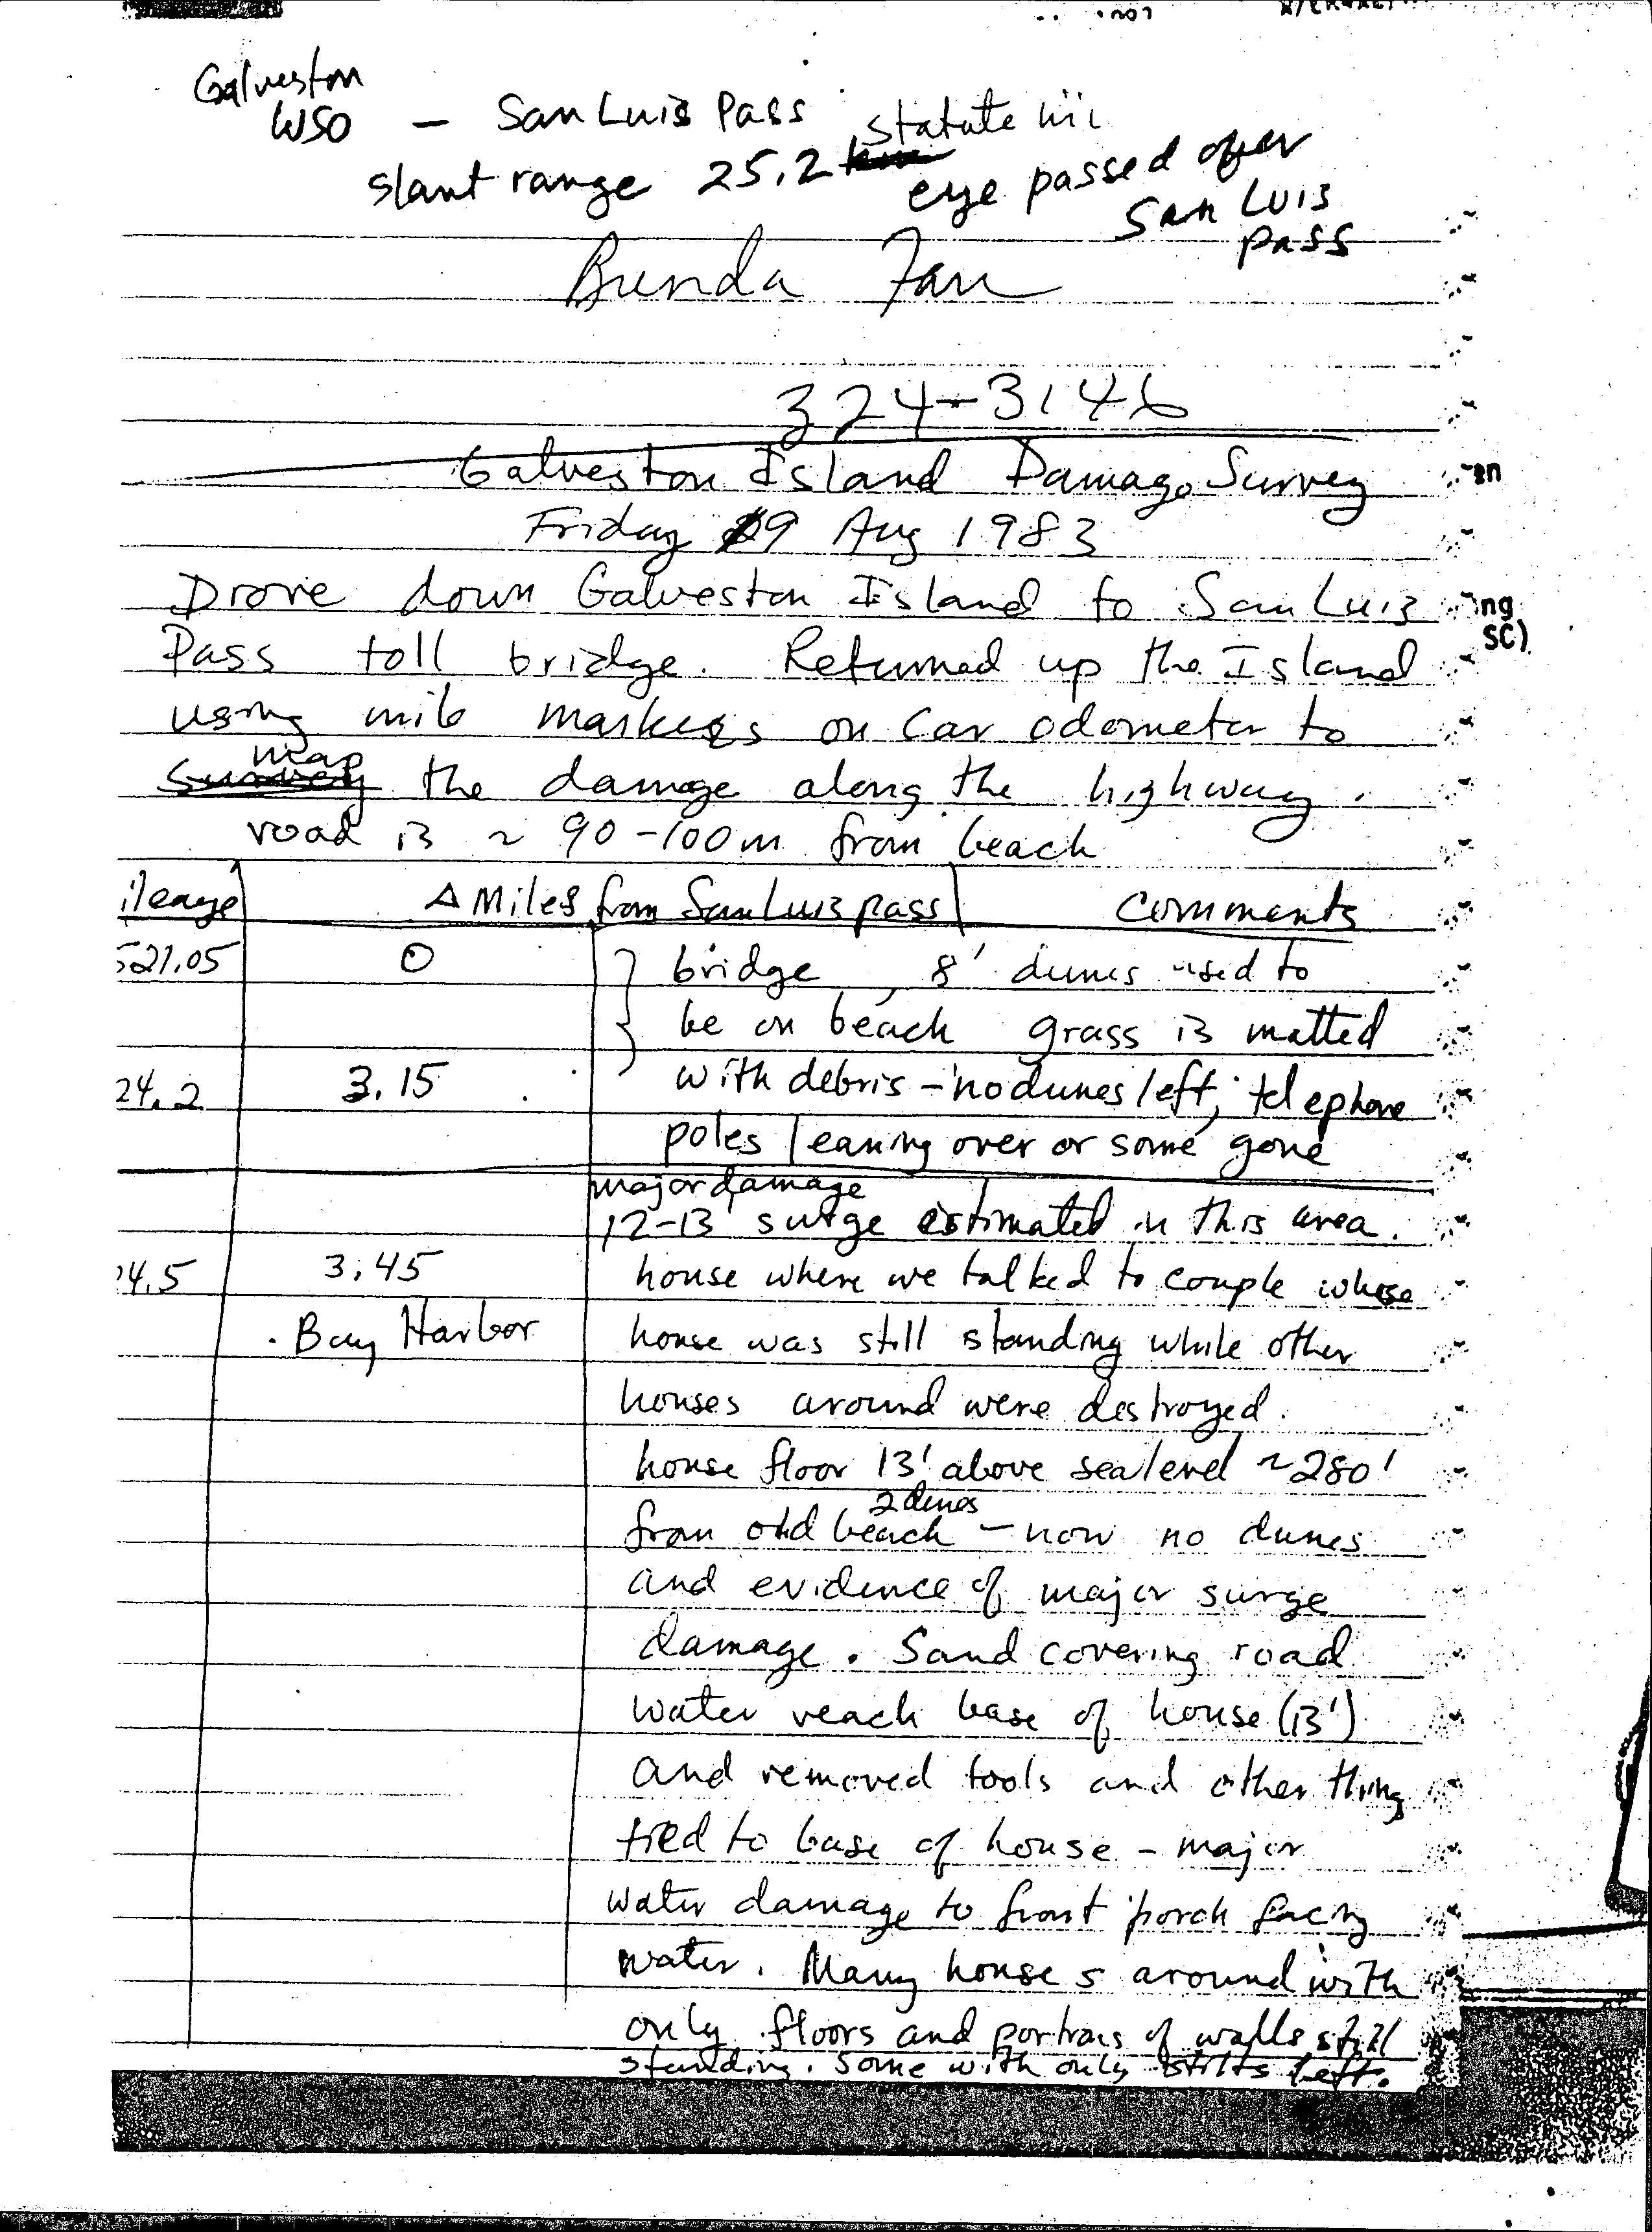 Galveston
WSO - San Luis Pass
slant range 25.2 km statute mi
eye passed over
San Luis
pass
Brenda
324-3146
Galveston Island Damage Survey
Friday 19 Aug 1983
Drove down Galveston Island to San Luis
Pass toll bridge. Returned up the Island
using mile markers on car odometer to
survey map the damage along the highway.
road is ~ 90-100m from beach
ileage Δ Miles from San Luis pass Comments
521.05 0 bridge, 8' dunes used to
be on beach grass is matted
24.2 3.15 with debris - no dunes left, telephone
poles leaning over or some gone
major damage
12-13' surge estimated in this area.
24.5 3.45 house where we talked to couple whose
Bay Harbor house was still standing while other
houses around were destroyed.
house floor 13' above sea level ~280'
2 dunes
from old beach - now no dunes
and evidence of major surge
damage. Sand covering road
water reach base of house (13')
and removed tools and other thing
tied to base of house - major
water damage to front porch facing
water. Many houses around with
only floors and portions of walls still
standing. Some with only stilts left.
en
ng
SC)